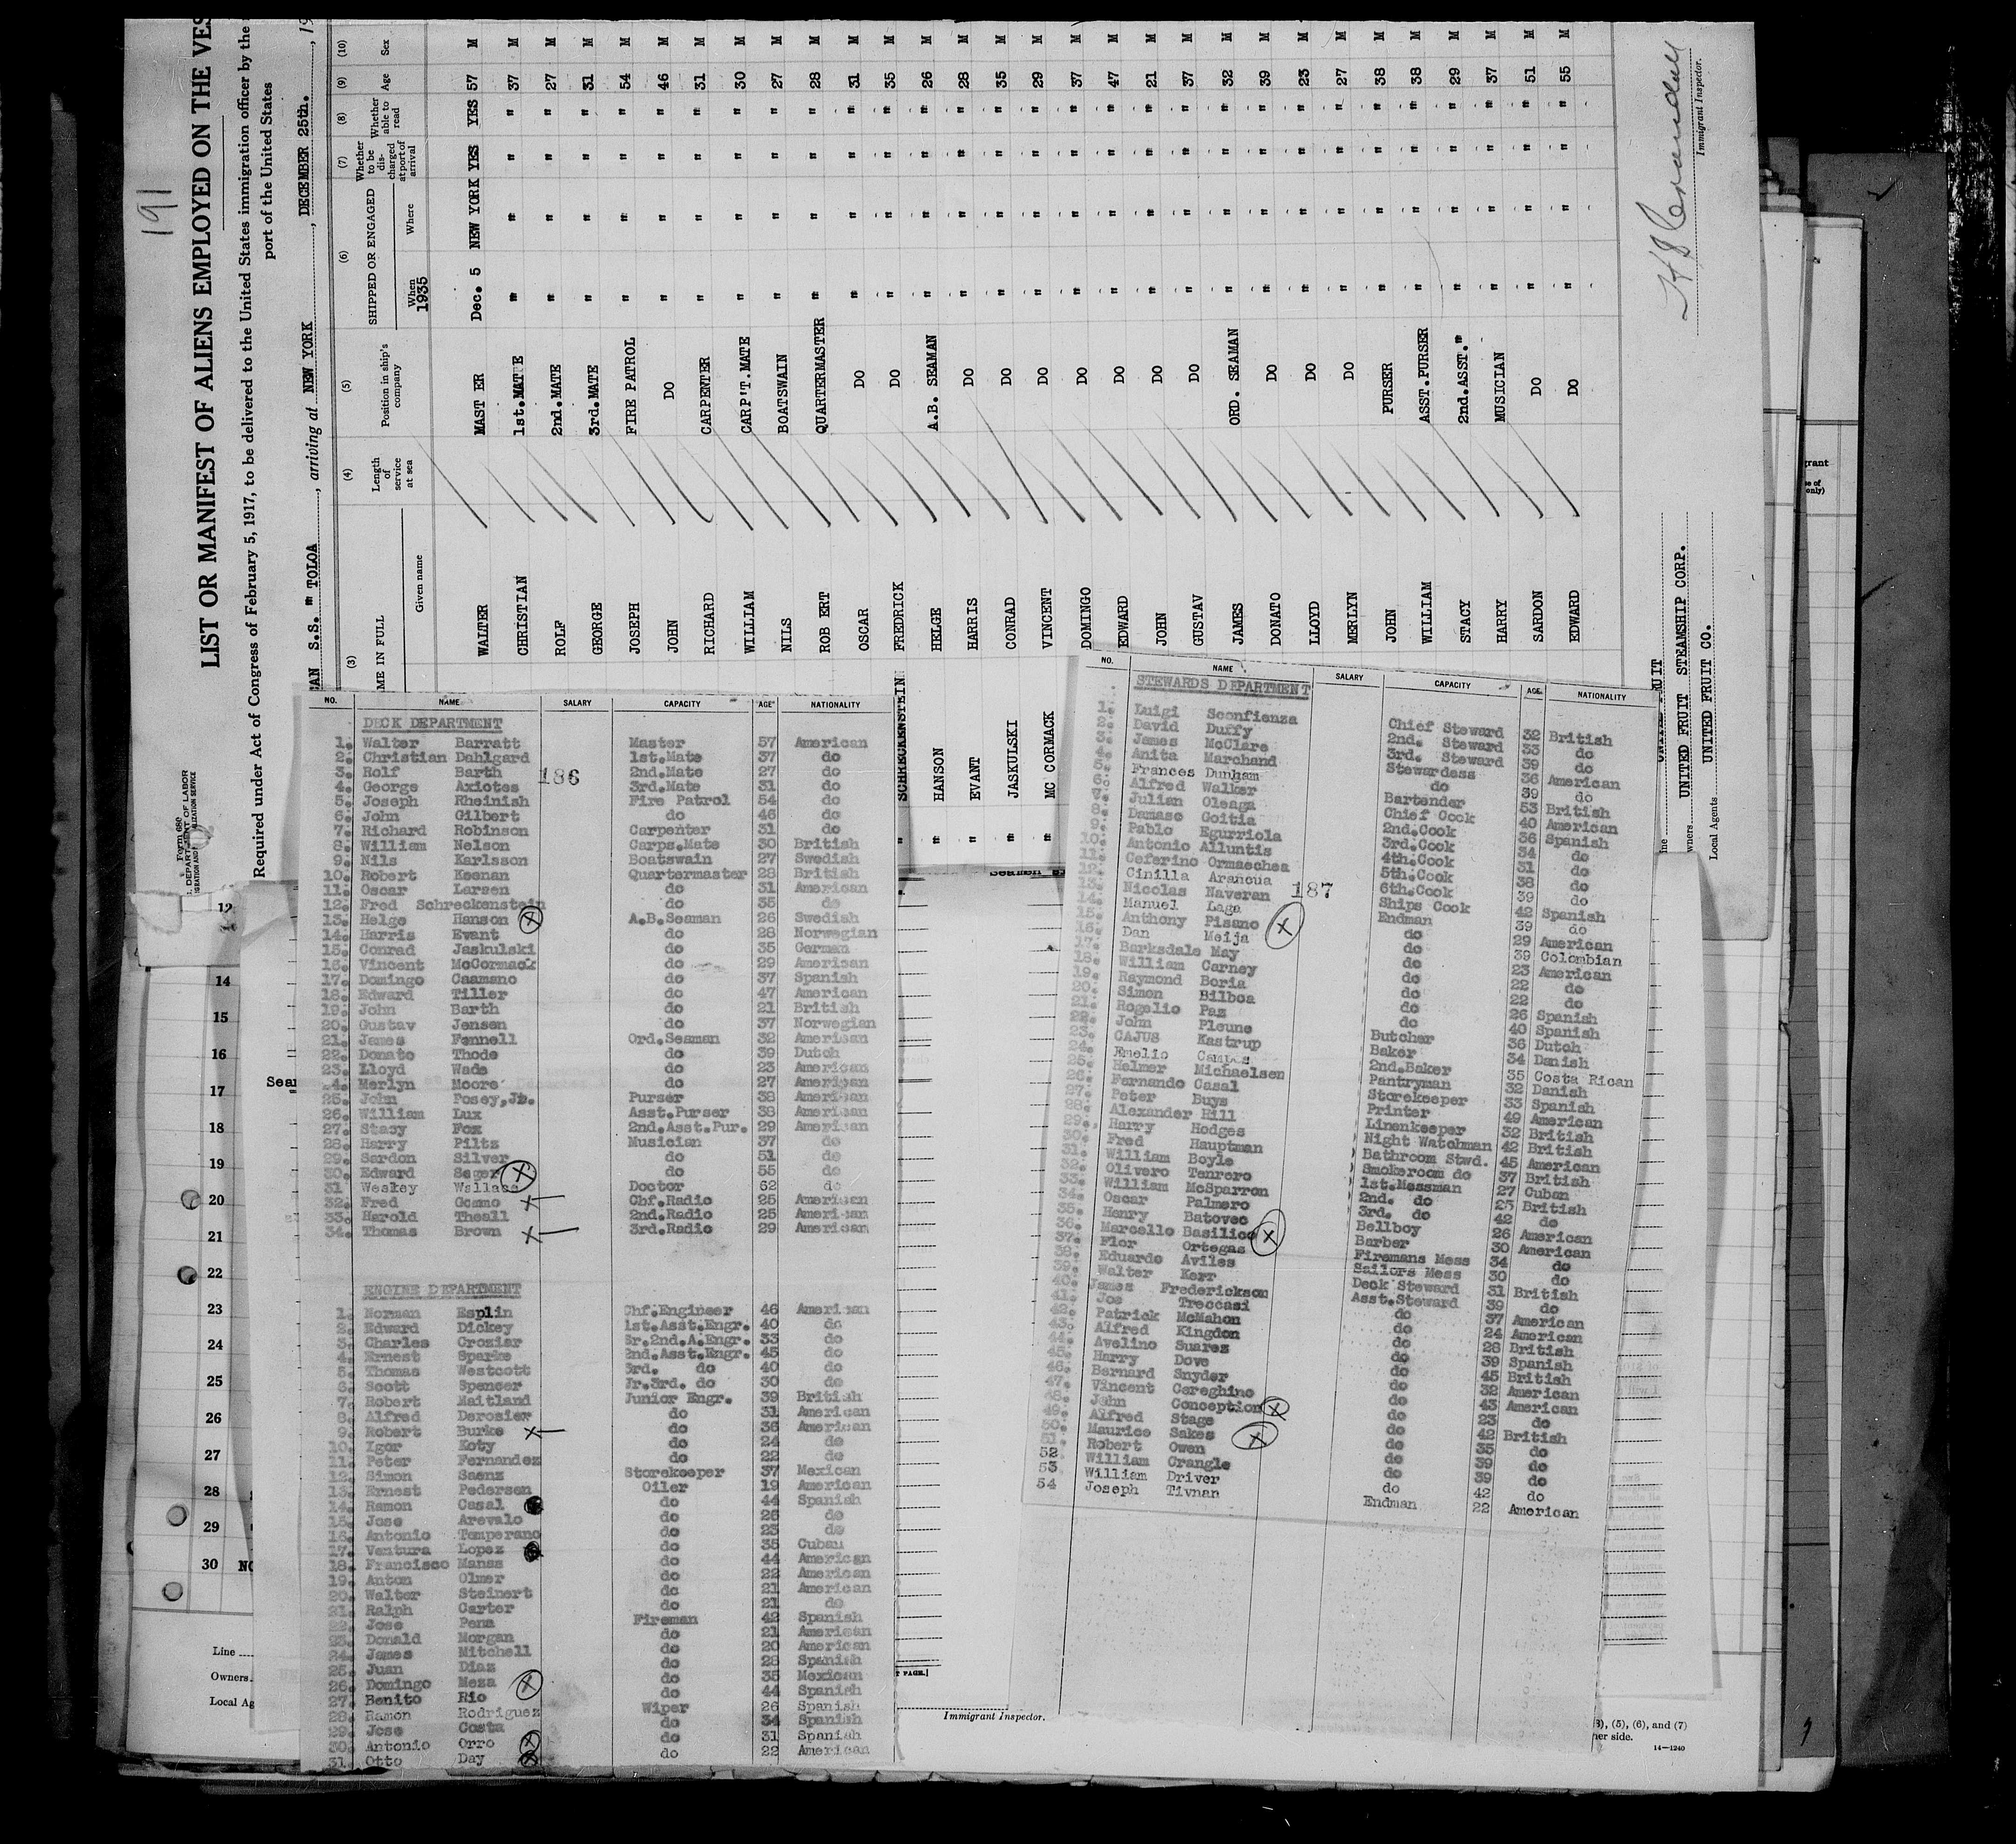 191
LIST OR MANIFEST OF ALIENS EMPLOYED ON THE VES
Required under Act of Congress of February 5, 1917, to be delivered to the United States immigration officer by the
port of the United States
CAN S.S." TOLOA, arriving at NEW YORK, DECEMBER 25th., 19
(3) (4) (5) (6) (7) (8) (9) (10)
ME IN FULL Length of service at sea Position in ship's company SHIPPED OR ENGAGED Whether to be discharged at port of arrival Whether able to read Age Sex
Given name When Where
1935
WALTER MAST ER Dec. 5 NEW YORK YES YES 57 M
CHRISTIAN 1st.MATE " " " " 37 M
ROLF 2nd.MATE " " " " 27 M
GEORGE 3rd.MATE " " " " 31 M
JOSEPH FIRE PATROL " " " " 54 M
JOHN DO " " " " 46 M
RICHARD CARPENTER " " " " 31 M
WILLIAM CARP'T.MATE " " " " 30 M
NILS BOATSWAIN " " " " 27 M
ROB ERT QUARTERMASTER " " " " 28 M
OSCAR DO " " " " 31 M
SCHRECKENSTEIN FREDERICK DO " " " " 35 M
" HANSON HELGE A.B. SEAMAN " " " " 26 M
" EVANT HARRIS DO " " " " 28 M
" JASKULSKI CONRAD DO " " " " 35 M
" MC CORMACK VINCENT DO " " " " 29 M
DOMINGO DO " " " " 37 M
EDWARD DO " " " " 47 M
JOHN DO " " " " 21 M
GUSTAV DO " " " " 37 M
JAMES ORD. SEAMAN " " " " 32 M
DONATO DO " " " " 39 M
LLOYD DO " " " " 23 M
MERLYN DO " " " " 27 M
JOHN PURSER " " " " 38 M
WILLIAM ASST.PURSER " " " " 38 M
STACY 2nd.ASST." " " " " 29 M
HARRY MUSICIAN " " " " 37 M
SARDON DO " " " " 51 M
EDWARD DO " " " " 55 M
UNITED FRUIT STEAMSHIP CORP.
Local Agents UNITED FRUIT CO.
Immigrant Inspector.
Form 680
NO. NAME SALARY CAPACITY AGE NATIONALITY
DECK DEPARTMENT
1. Walter Barratt Master 57 American
2. Christian Dahlgard 1st.Mate 37 do
3. Rolf Barth 186 2nd.Mate 27 do
4. George Axiotes 3rd.Mate 31 do
5. Joseph Rheinish Fire Patrol 54 do
6. John Gilbert do 46 do
7. Richard Robinson Carpenter 31 do
8. William Nelson Carps.Mate 30 British
9. Nils Karlsson Boatswain 27 Swedish
10. Robert Keenan Quartermaster 28 British
11. Oscar Larsen do 31 American
12. Fred Schreckenstein do 35 do
13. Helge Hanson X A.B.Seaman 26 Swedish
14. Harris Evant do 28 Norwegian
15. Conrad Jaskulski do 35 German
16. Vincent McCormack do 29 American
17. Domingo Caamano do 37 Spanish
18. Edward Tiller do 47 American
19. John Barth do 21 British
20. Gustav Jensen do 37 Norwegian
21. James Fennell Ord.Seaman 32 American
22. Donato Thode do 39 Dutch
23. Lloyd Wade do 23 American
4. Merlyn Moore do 27 American
25. John Posey,Jr. Purser 38 American
26. William Lux Asst.Purser 38 American
27. Stacy Fox 2nd.Asst.Pur. 29 American
28. Harry Piltz Musician 37 do
29. Sardon Silver do 51 do
30. Edward Seger X do 55 do
31 Wesley Wallace Doctor 62 do
32. Fred Gommo X Chf.Radio 25 American
33. Harold Theall 2nd.Radio 25 American
34. Thomas Brown X 3rd.Radio 29 American
ENGINE DEPARTMENT
1. Norman Esplin Chf.Engineer 46 American
2. Edward Dickey 1st.Asst.Engr. 40 do
3. Charles Crozier Sr.2nd.A.Engr. 33 do
4. Ernest Sparks 2nd.Asst.Engr. 45 do
5. Thomas Westcott 3rd. do 40 do
6. Scott Spencer Jr.3rd. do 30 do
7. Robert Maitland Junior Engr. 39 British
8. Alfred Derosier do 31 American
9. Robert Burke X do 36 American
10. Igor Koty do 24 do
11. Peter Fernandez do 22 do
12. Simon Saenz Storekeeper 37 Mexican
13. Ernest Pedersen Oiler 19 American
14. Ramon Casal do 44 Spanish
15. Jose Arevalo do 26 do
16. Antonio Temperano do 23 do
17. Ventura Lopez do 35 Cuban
18. Francisco Manas do 44 American
19. Anton Olmer do 22 American
20. Walter Steinert do 21 American
21. Ralph Carter do 21 do
22. Jose Pena Fireman 42 Spanish
23. Donald Morgan do 21 American
24. James Mitchell do 20 American
25. Juan Diaz do 28 Spanish
26. Domingo Meza X do 35 Mexican
27. Benito Rio do 44 Spanish
28. Ramon Rodriguez Wiper 26 Spanish
29. Jose Costa do 34 Spanish
30. Antonio Orro X do 31 Spanish
31. Otto Day X do 22 American
NO. NAME SALARY CAPACITY AGE NATIONALITY
STEWARDS DEPARTMENT
1. Luigi Sconfienza Chief Steward 32 British
2. David Duffy 2nd. Steward 33 do
3. James McClare 3rd. Steward 39 do
4. Anita Marchand Stewardess 36 American
5. Frances Dunham do 39 do
6. Alfred Walker Bartender 53 British
7. Julian Oleaga Chief Cook 40 American
8. Damaso Goitia 2nd.Cook 36 Spanish
9. Pablo Egurriola 3rd.Cook 34 do
10. Antonio Alluntis 4th.Cook 31 do
11. Ceferino Ormaechea 5th.Cook 38 do
12. Cinilla Arancua 187 6th.Cook 39 do
13. Nicolas Naveran Ships Cook 42 Spanish
14. Manuel Laga Endman 39 do
15. Anthony Pisano X do 29 American
16. Dan Meija do 39 Colombian
17. Barksdale May do 23 American
18. William Carney do 22 do
19. Raymond Boria do 22 do
20. Simon Bilboa do 26 Spanish
21. Rogelio Paz do 40 Spanish
22. John Pleune Butcher 36 Dutch
23. CAJUS Kastrup Baker 34 Danish
24. Emelio Campos 2nd.Baker 35 Costa Rican
25. Helmer Michaelsen Pantryman 32 Danish
26. Fernando Casal Storekeeper 33 Spanish
27. Peter Buys Printer 49 American
28. Alexander Hill Linenkeeper 32 British
29. Harry Hodges Night Watchman 42 British
30. Fred Hauptman Bathroom Stwd. 45 American
31. William Boyle Smokeroom do 37 British
32. Olivero Tenrero 1st.Messman 27 Cuban
33. William McSparron 2nd. do 25 British
34. Oscar Palmero 3rd. do 42 do
35. Henry Batovec Bellboy 26 American
36. Marcello Basilico X Barber 30 American
37. Flor Ortegas Firemans Mess 34 do
38. Eduardo Aviles Sailors Mess 30 do
39. Walter Kerr Deck Steward 31 British
40. James Frederickson Asst.Steward 39 do
41. Joe Treccasi do 37 American
42. Patrick McMahon do 24 American
43. Alfred Kingdon do 28 British
44. Avelino Suarez do 39 Spanish
45. Harry Dove do 45 British
46. Bernard Snyder do 32 American
47. Vincent Cereghino do 43 American
48. John Conception X do 23 do
49. Alfred Stage do 42 British
50. Maurice Sakes X do 35 do
51. Robert Owen do 39 do
52. William Crangle do 39 do
53 William Driver do 42 do
54 Joseph Tivnan Endman 22 American
12
14
15
16
17
18
19
20
21
22
23
24
25
26
27
28
29
30
Line
Owners
Local Ag
T PAGE.]
Immigrant Inspector.
(5), (6), and (7)
her side.
14—1240